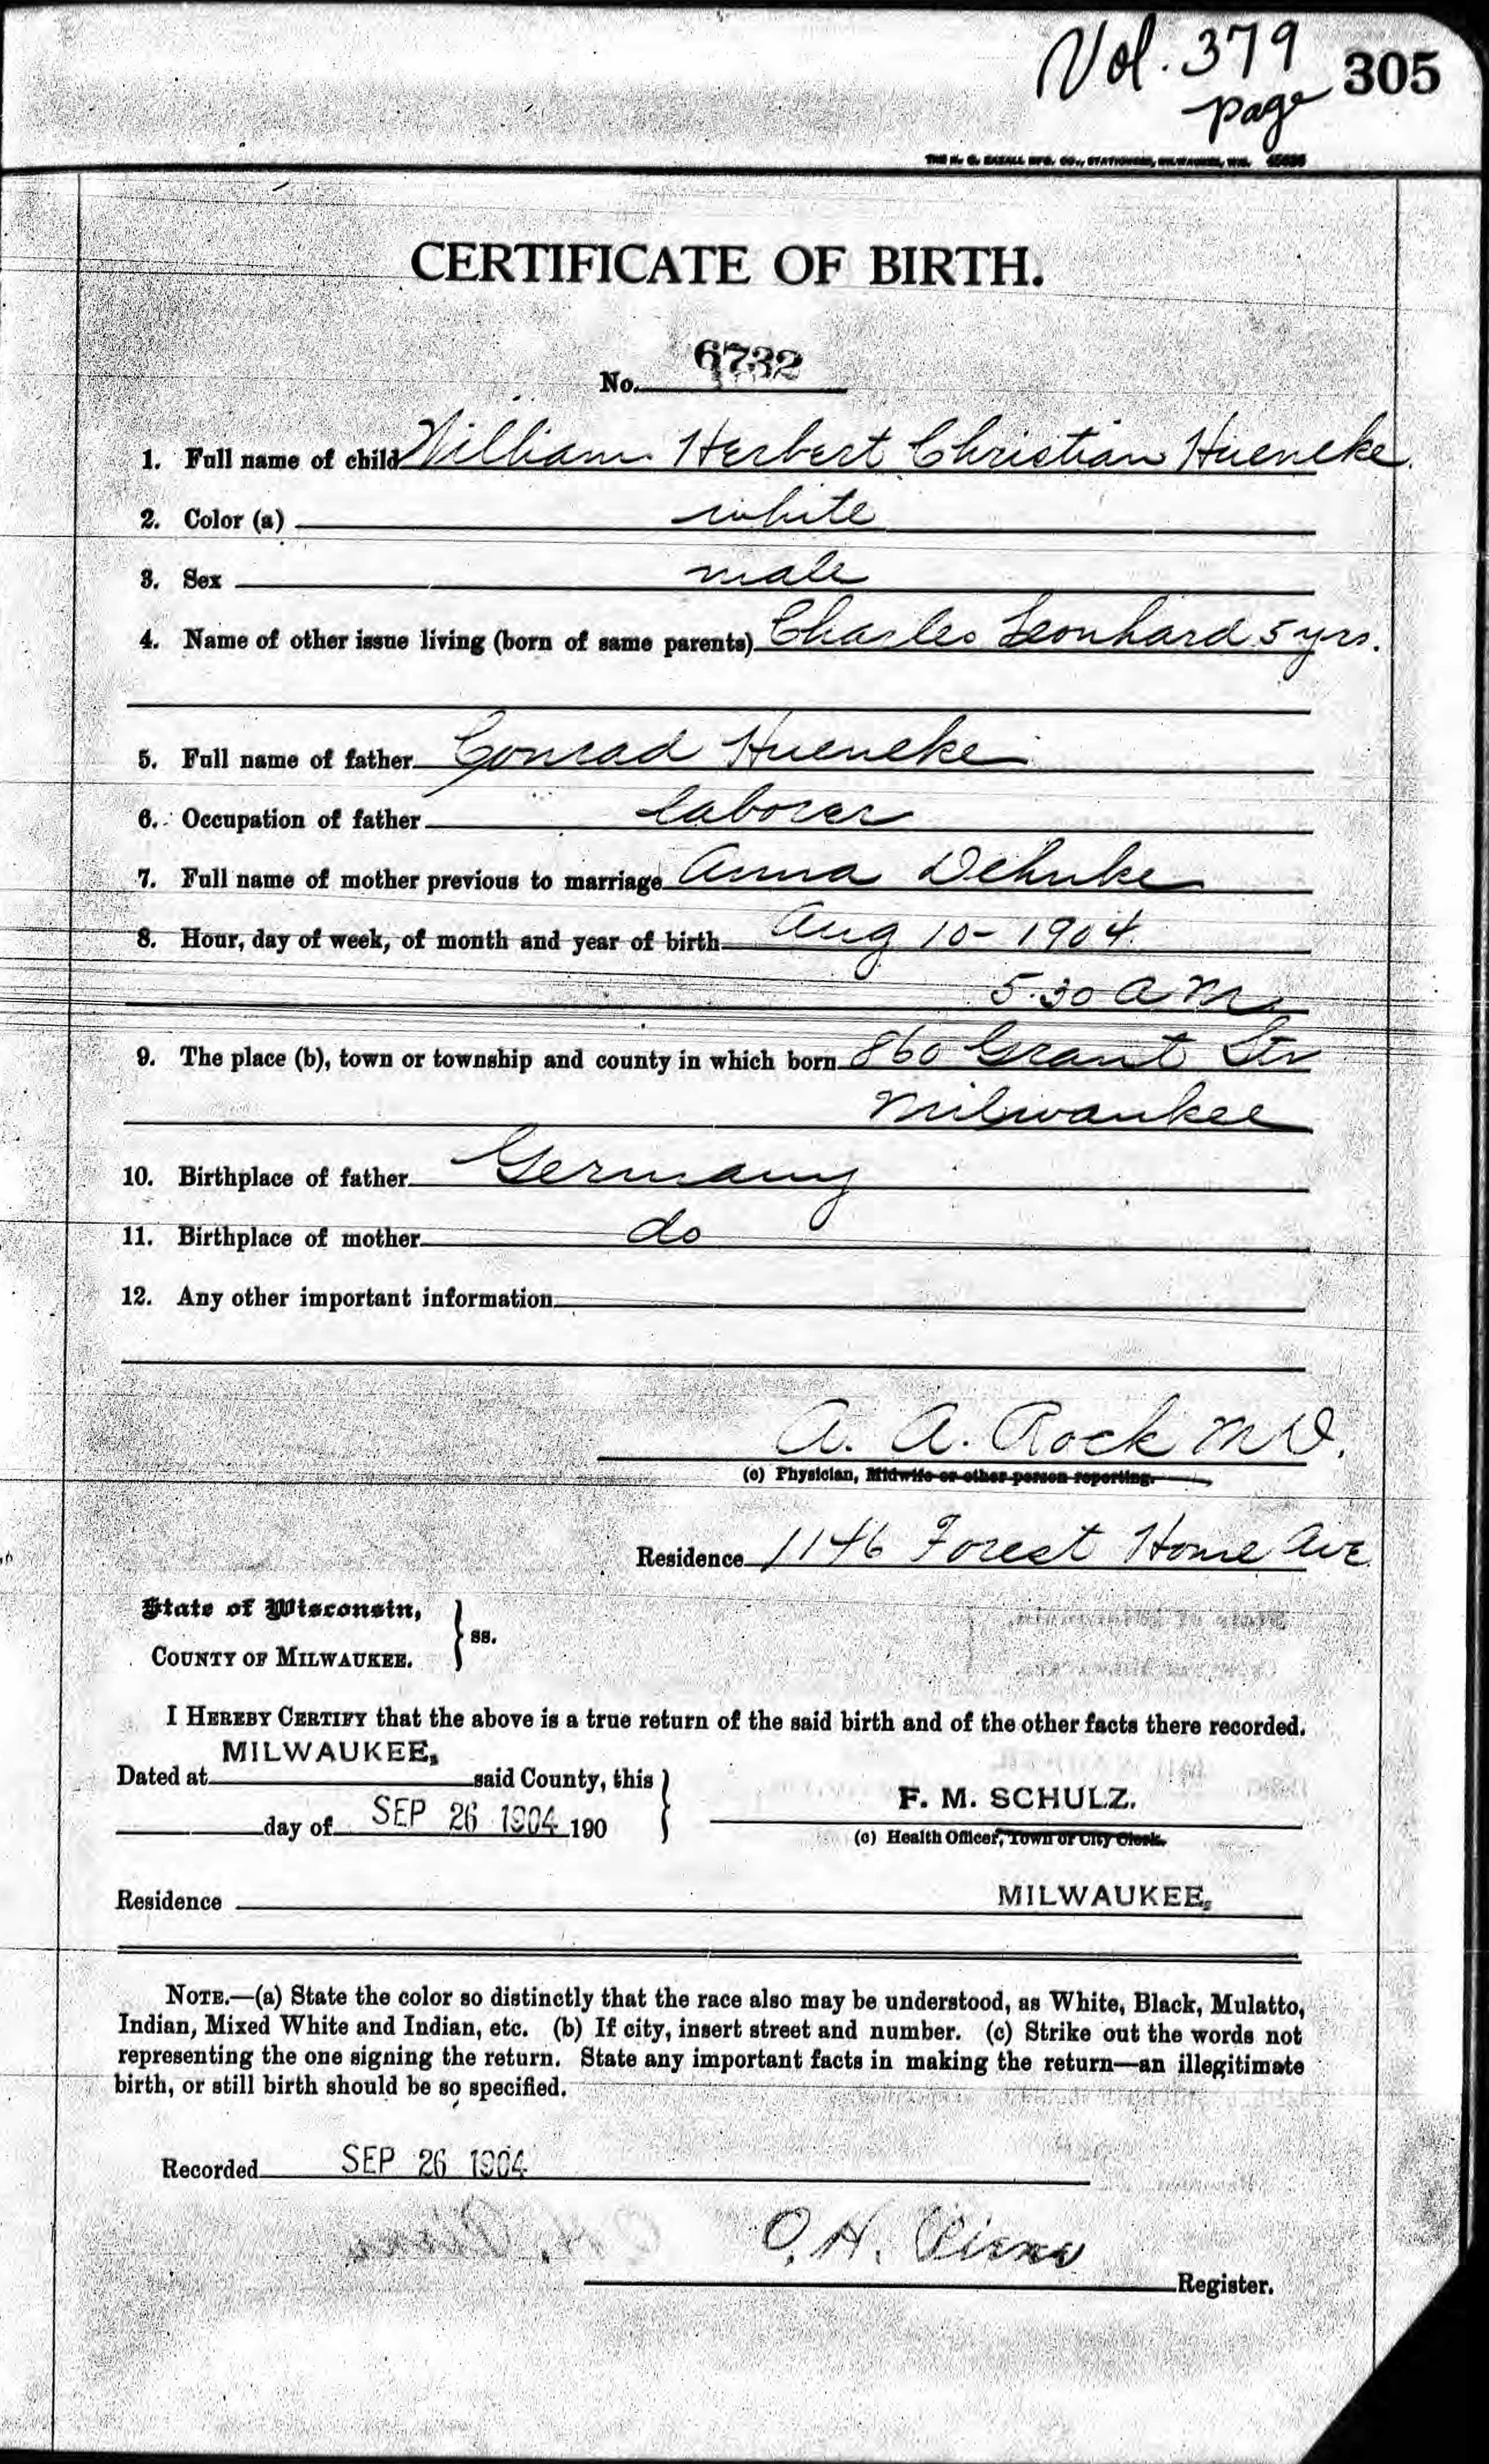 Vol. 379
page 305
CERTIFICATE OF BIRTH.
No. 6732
1. Full name of child William Herbert Christian Hueneke.
2. Color (a) white
3. Sex male
4. Name of other issue living (born of same parents) Charles Leonhard 5 yrs.
5. Full name of father Conrad Hueneke
6. Occupation of father laborer
7. Full name of mother previous to marriage Anna Dehnke
8. Hour, day of week, of month and year of birth Aug 10 - 1904
5.30 a m
9. The place (b), town or township and county in which born 860 Grant Str
Milwaukee
10. Birthplace of father Germany
11. Birthplace of mother do
12. Any other important information
A. A. Rock M D.
(c) Physician, Midwife or other person reporting.
Residence 1146 Forest Home Ave
State of Wisconsin,
COUNTY OF MILWAUKEE. } ss.
I HEREBY CERTIFY that the above is a true return of the said birth and of the other facts there recorded.
Dated at MILWAUKEE, said County, this
day of SEP 26 1904 190
F. M. SCHULZ.
(c) Health Officer, Town or City Clerk.
Residence MILWAUKEE,
NOTE.—(a) State the color so distinctly that the race also may be understood, as White, Black, Mulatto,
Indian, Mixed White and Indian, etc. (b) If city, insert street and number. (c) Strike out the words not
representing the one signing the return. State any important facts in making the return—an illegitimate
birth, or still birth should be so specified.
Recorded SEP 26 1904
O. H.
Register.